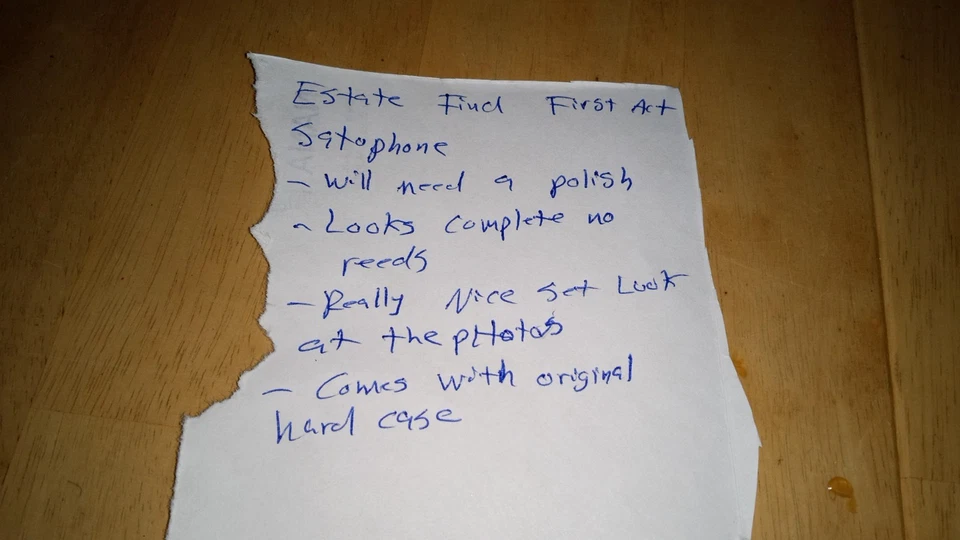 Estate Find First Act
Satophone
- will need a polish
- Looks complete no
reeds
- Really Nice set Look
at the pHotos
- Comes with original
hard case